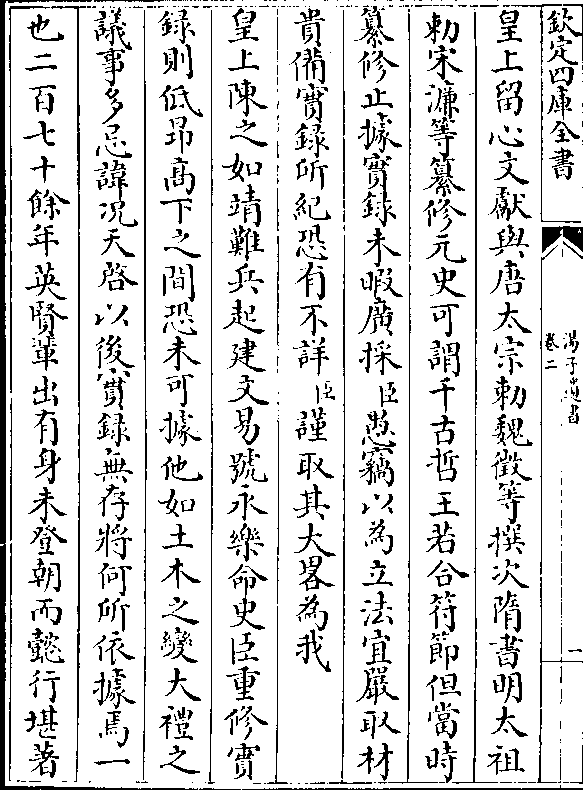 欽定四庫全書
湯子遺書
卷二
一
皇上留心文獻與唐太宗勅魏徵等撰次隋書明太祖
勅宋濂等纂修元史可謂千古哲王若合符節但當時
纂修止據實録未暇廣採臣愚竊以為立法宜嚴取材
貴備實録所紀恐有不詳臣謹取其大畧為我
皇上陳之如靖難兵起建文易號永樂命史臣重修實
録則低昻髙下之間恐未可據他如土木之變大禮之
議事多忌諱况天啓以後實録無存將何所依據焉一
也二百七十餘年英賢輩出有身未登朝而懿行堪著